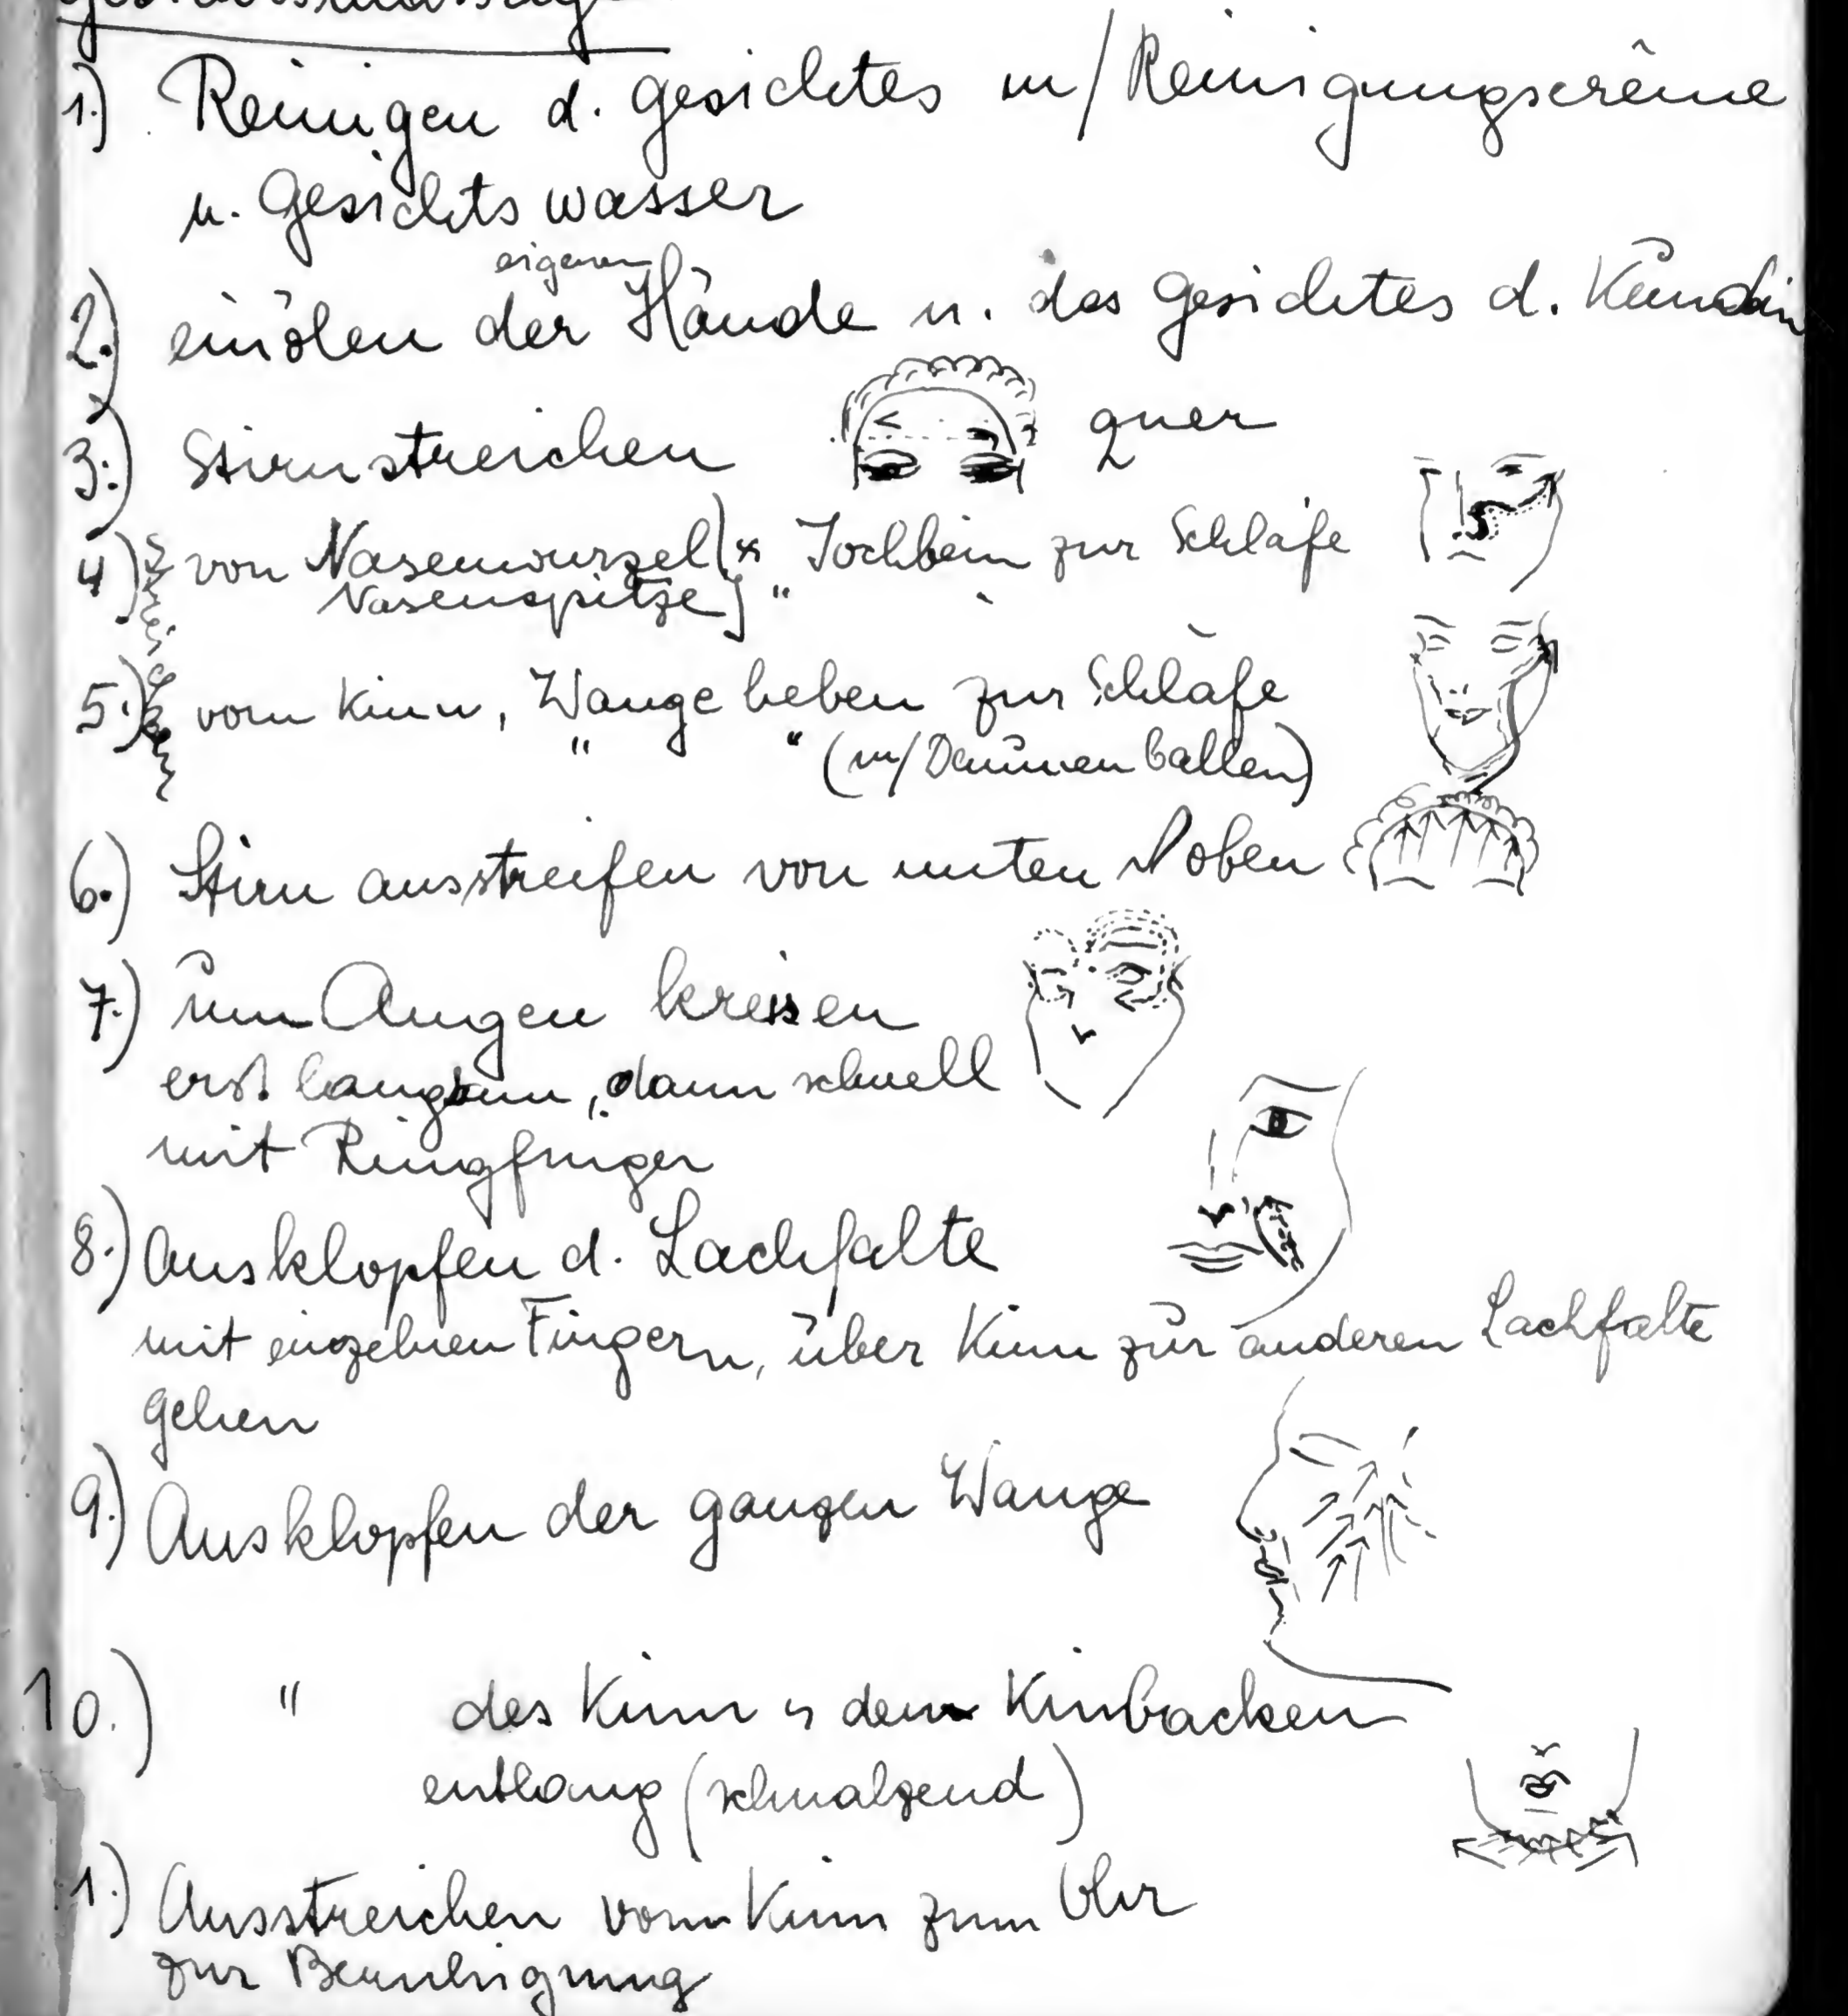 1.) Reinigen d. Gesichtes m/Reinigungscrême
u. Gesichtswasser
eigenen
2.) einölen der Hände u. des Gesichtes d. Kundin
3.) Stirnstreichen quer
4.) von Nasenwurzel] Jochbein zur Schläfe
Nasenspitze] "
5.) vom Kinn, Wange heben zur Schläfe
" " (m/Daumenballen)
6.) Stirn ausstreifen von unten oben
7.) um Augen kreisen
erst langsam, dann schnell
mit Ringfinger
8.) Ausklopfen d. Lachfalte
mit einzelnen Fingern, über Kinn zur anderen Lachfalte
gehen
9.) Ausklopfen der ganzen Wange
10.) " des Kinn dem Kinbacken
entlang (schnalzend)
1.) Ausstreichen vom Kinn zum Ohr
zur Beruhigung